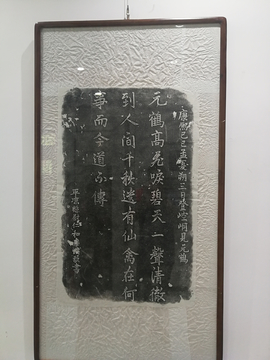 康熙己巳孟夏朔三日登崆峒見元鶴
元鶴高飛唳碧天一聲清徹
到人間千秋遺有仙禽在何
事而今道不傳
書